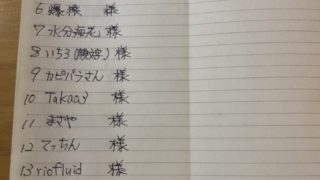 6 爆猿 様
7 水分海老 様
8 いち3(願活) 様
9 カピバラさん 様
10 Takaa3 様
11 まさや 様
12 てっちん 様
13 riofluid 様